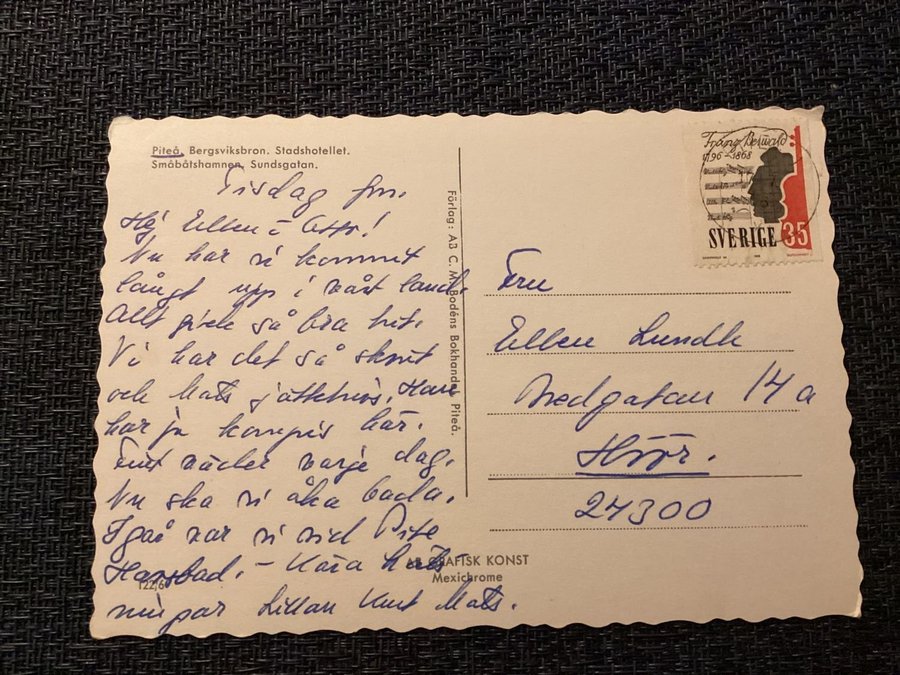 Piteå, Bergsviksbron. Stadshotellet.
Småbåtshamnen, Sundsgatan.
Tisdag fm.
Hej Ellen o !
Nu har vi kommit
långt upp i vårt land.
Allt gick så bra hit.
Vi har det så skönt
och Mats jättekul. Han
har ju kompis här.
Fint väder varje dag.
Nu ska vi åka bada.
Igår var vi vid Pite
Havsbad. – Kära häls-
ningar Lillan Kurt Mats.
122/6
Förlag: AB C. M. Bodéns Bokhandel, Piteå.
GRAFISK KONST
Mexichrome
Franz Berwald
1796-1868
SVERIGE 35
Fru
Ellen Lundh
gatan 14 a
Höör.
24300